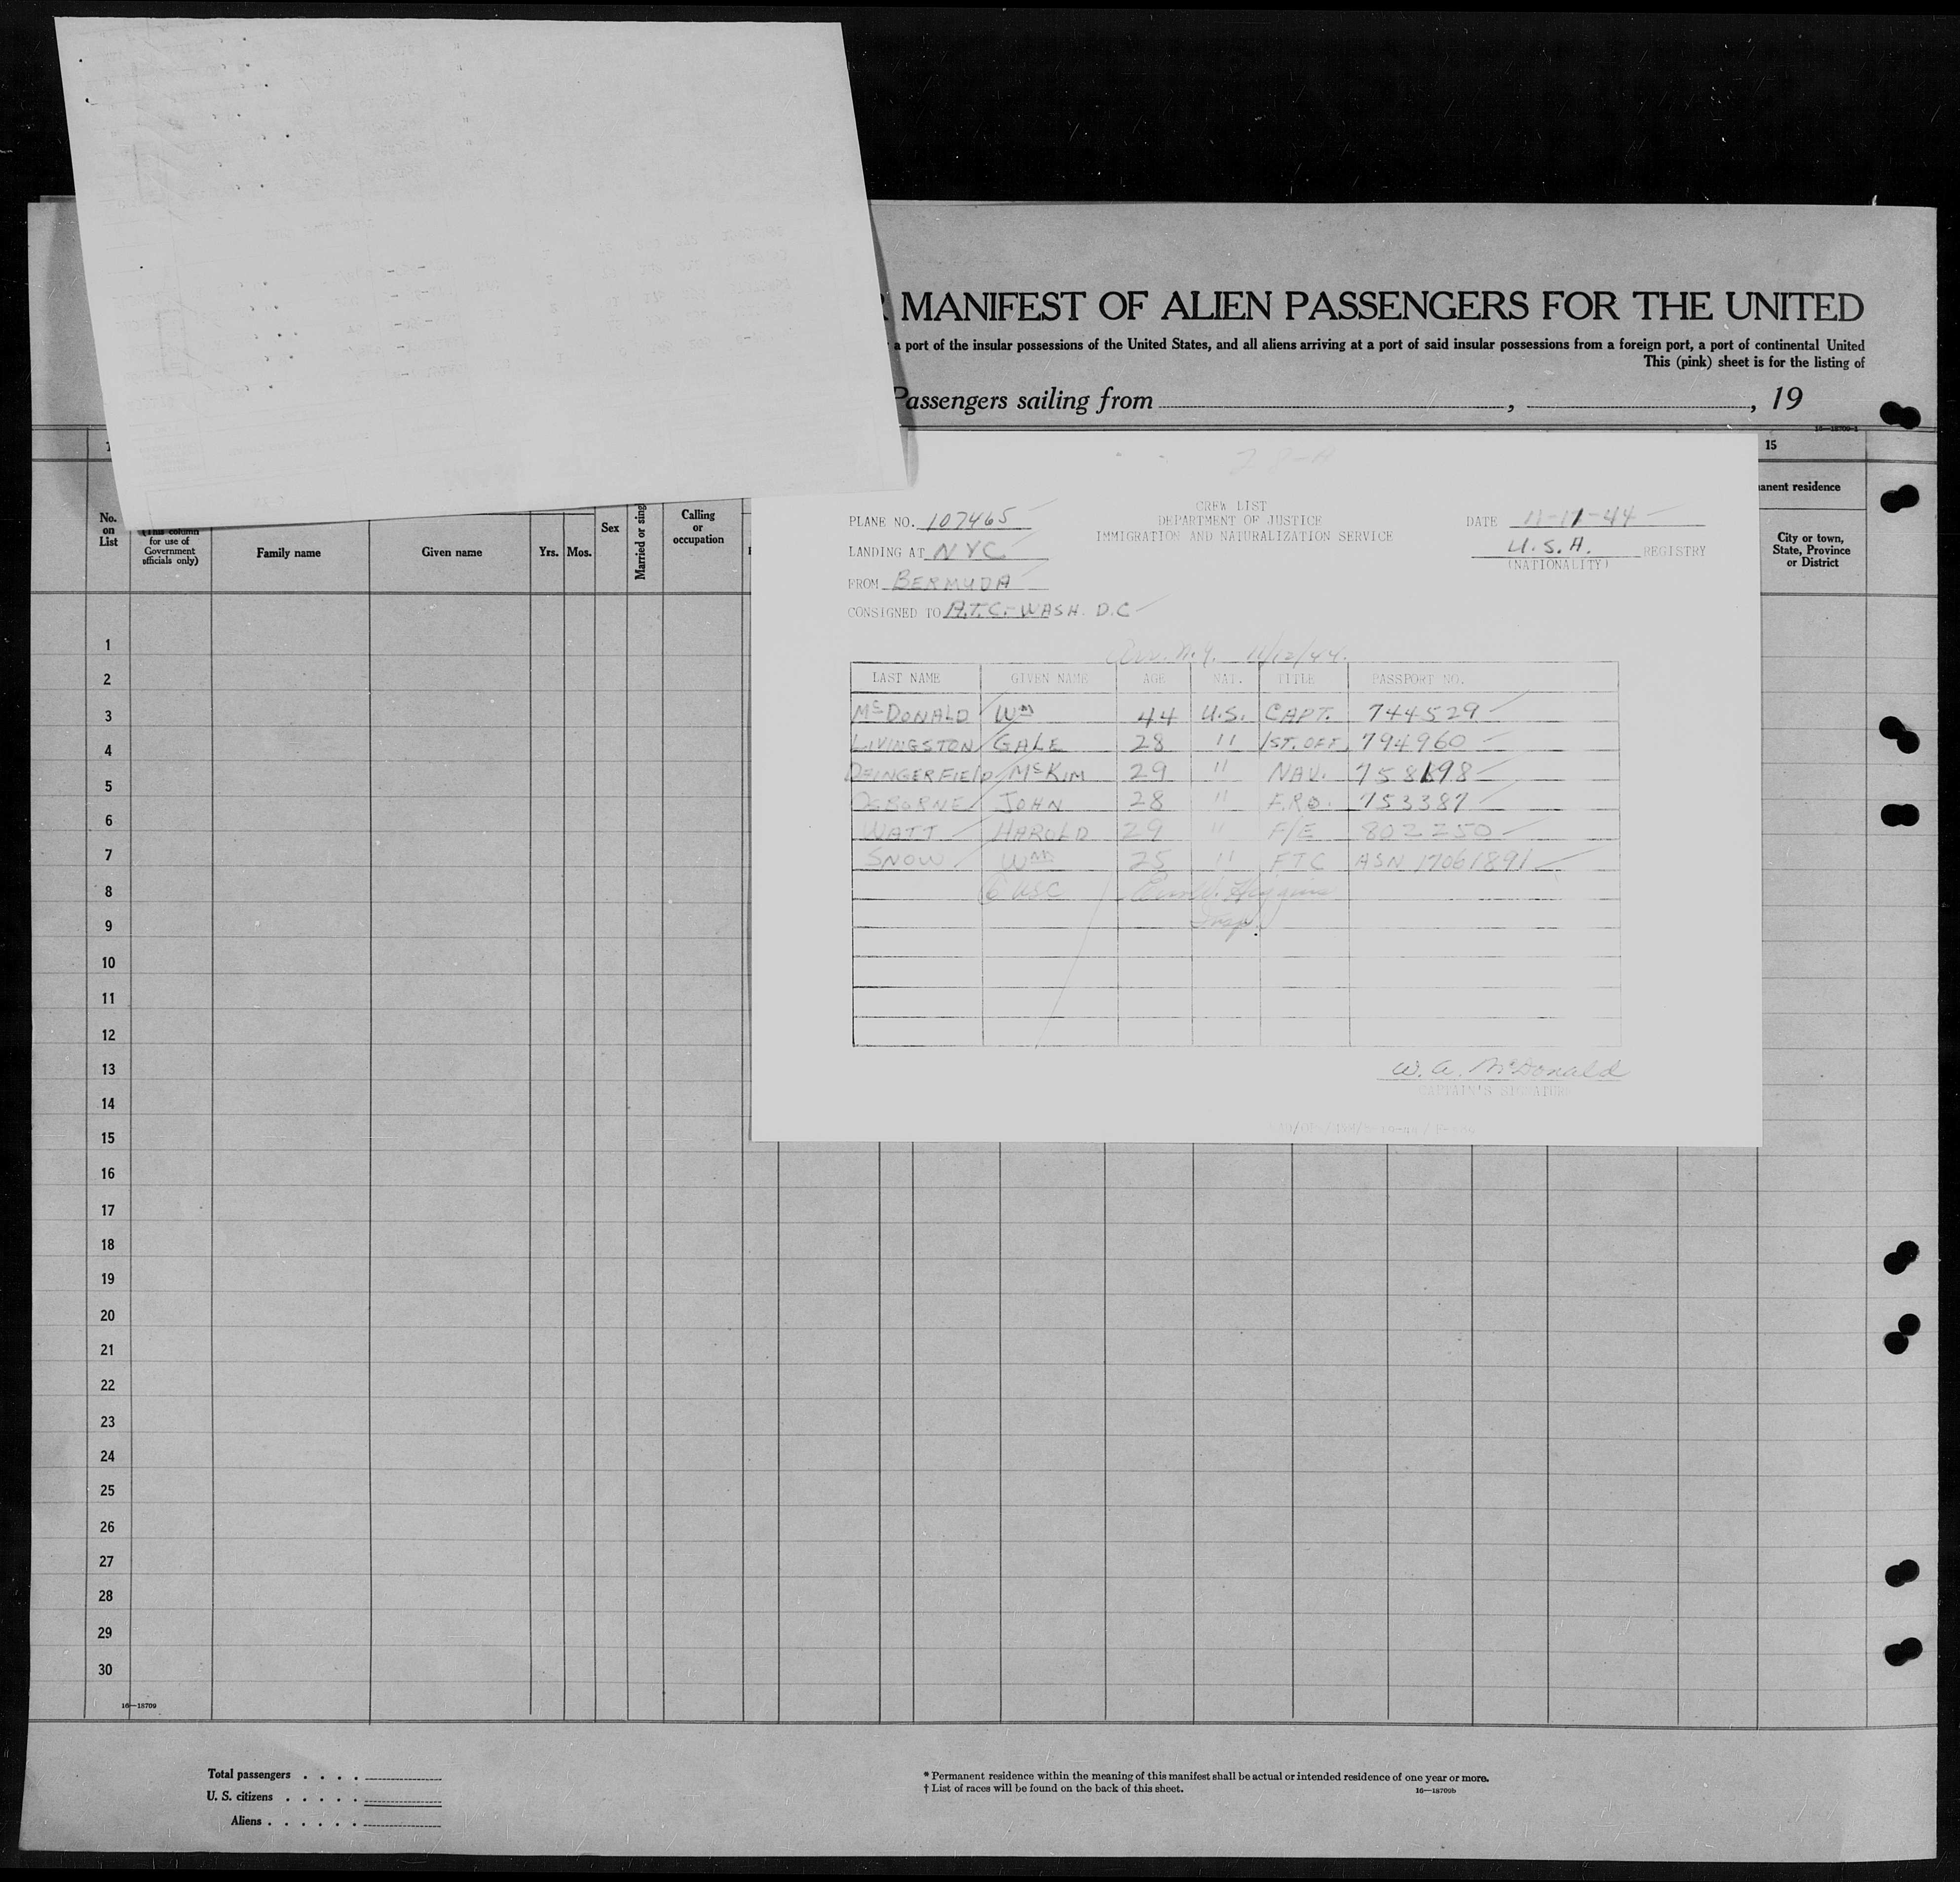 MANIFEST OF ALIEN PASSENGERS FOR THE UNITED
a port of the insular possessions of the United States, and all aliens arriving at a port of said insular possessions from a foreign port, a port of continental United
This (pink) sheet is for the listing of
Passengers sailing from , , 19
16—18709-1
15
No. on List
(This column for use of Government officials only)
Family name
Given name
Yrs.
Mos.
Sex
Married or sing
Calling or occupation
anent residence
City or town, State, Province or District
28-A
CREW LIST
DEPARTMENT OF JUSTICE
IMMIGRATION AND NATURALIZATION SERVICE
PLANE NO. 107465
LANDING AT NYC
FROM BERMUDA
CONSIGNED TO A.T.C.-WASH. D.C
DATE 11-11-44
U.S.A. REGISTRY
(NATIONALITY)
Arr. N.Y. 11/12/44.
LAST NAME GIVEN NAME AGE NAT. TITLE PASSPORT NO.
McDONALD Wm 44 U.S. CAPT. 744529
LIVINGSTON GALE 28 " 1ST. OFF. 794960
McKIM 29 " NAV.
OSBORNE JOHN 28 " F.R.O. 753387
WATT HAROLD 29 " F/E 802250
SNOW Wm 25 " FTC ASN 17061891
6 USC
Insp.
W. A. McDonald
CAPTAIN'S SIGNATURE
1
2
3
4
5
6
7
8
9
10
11
12
13
14
15
16
17
18
19
20
21
22
23
24
25
26
27
28
29
30
16—18709
Total passengers . . . .
U. S. citizens . . . . .
Aliens . . . . . .
* Permanent residence within the meaning of this manifest shall be actual or intended residence of one year or more.
† List of races will be found on the back of this sheet.
16—18709b